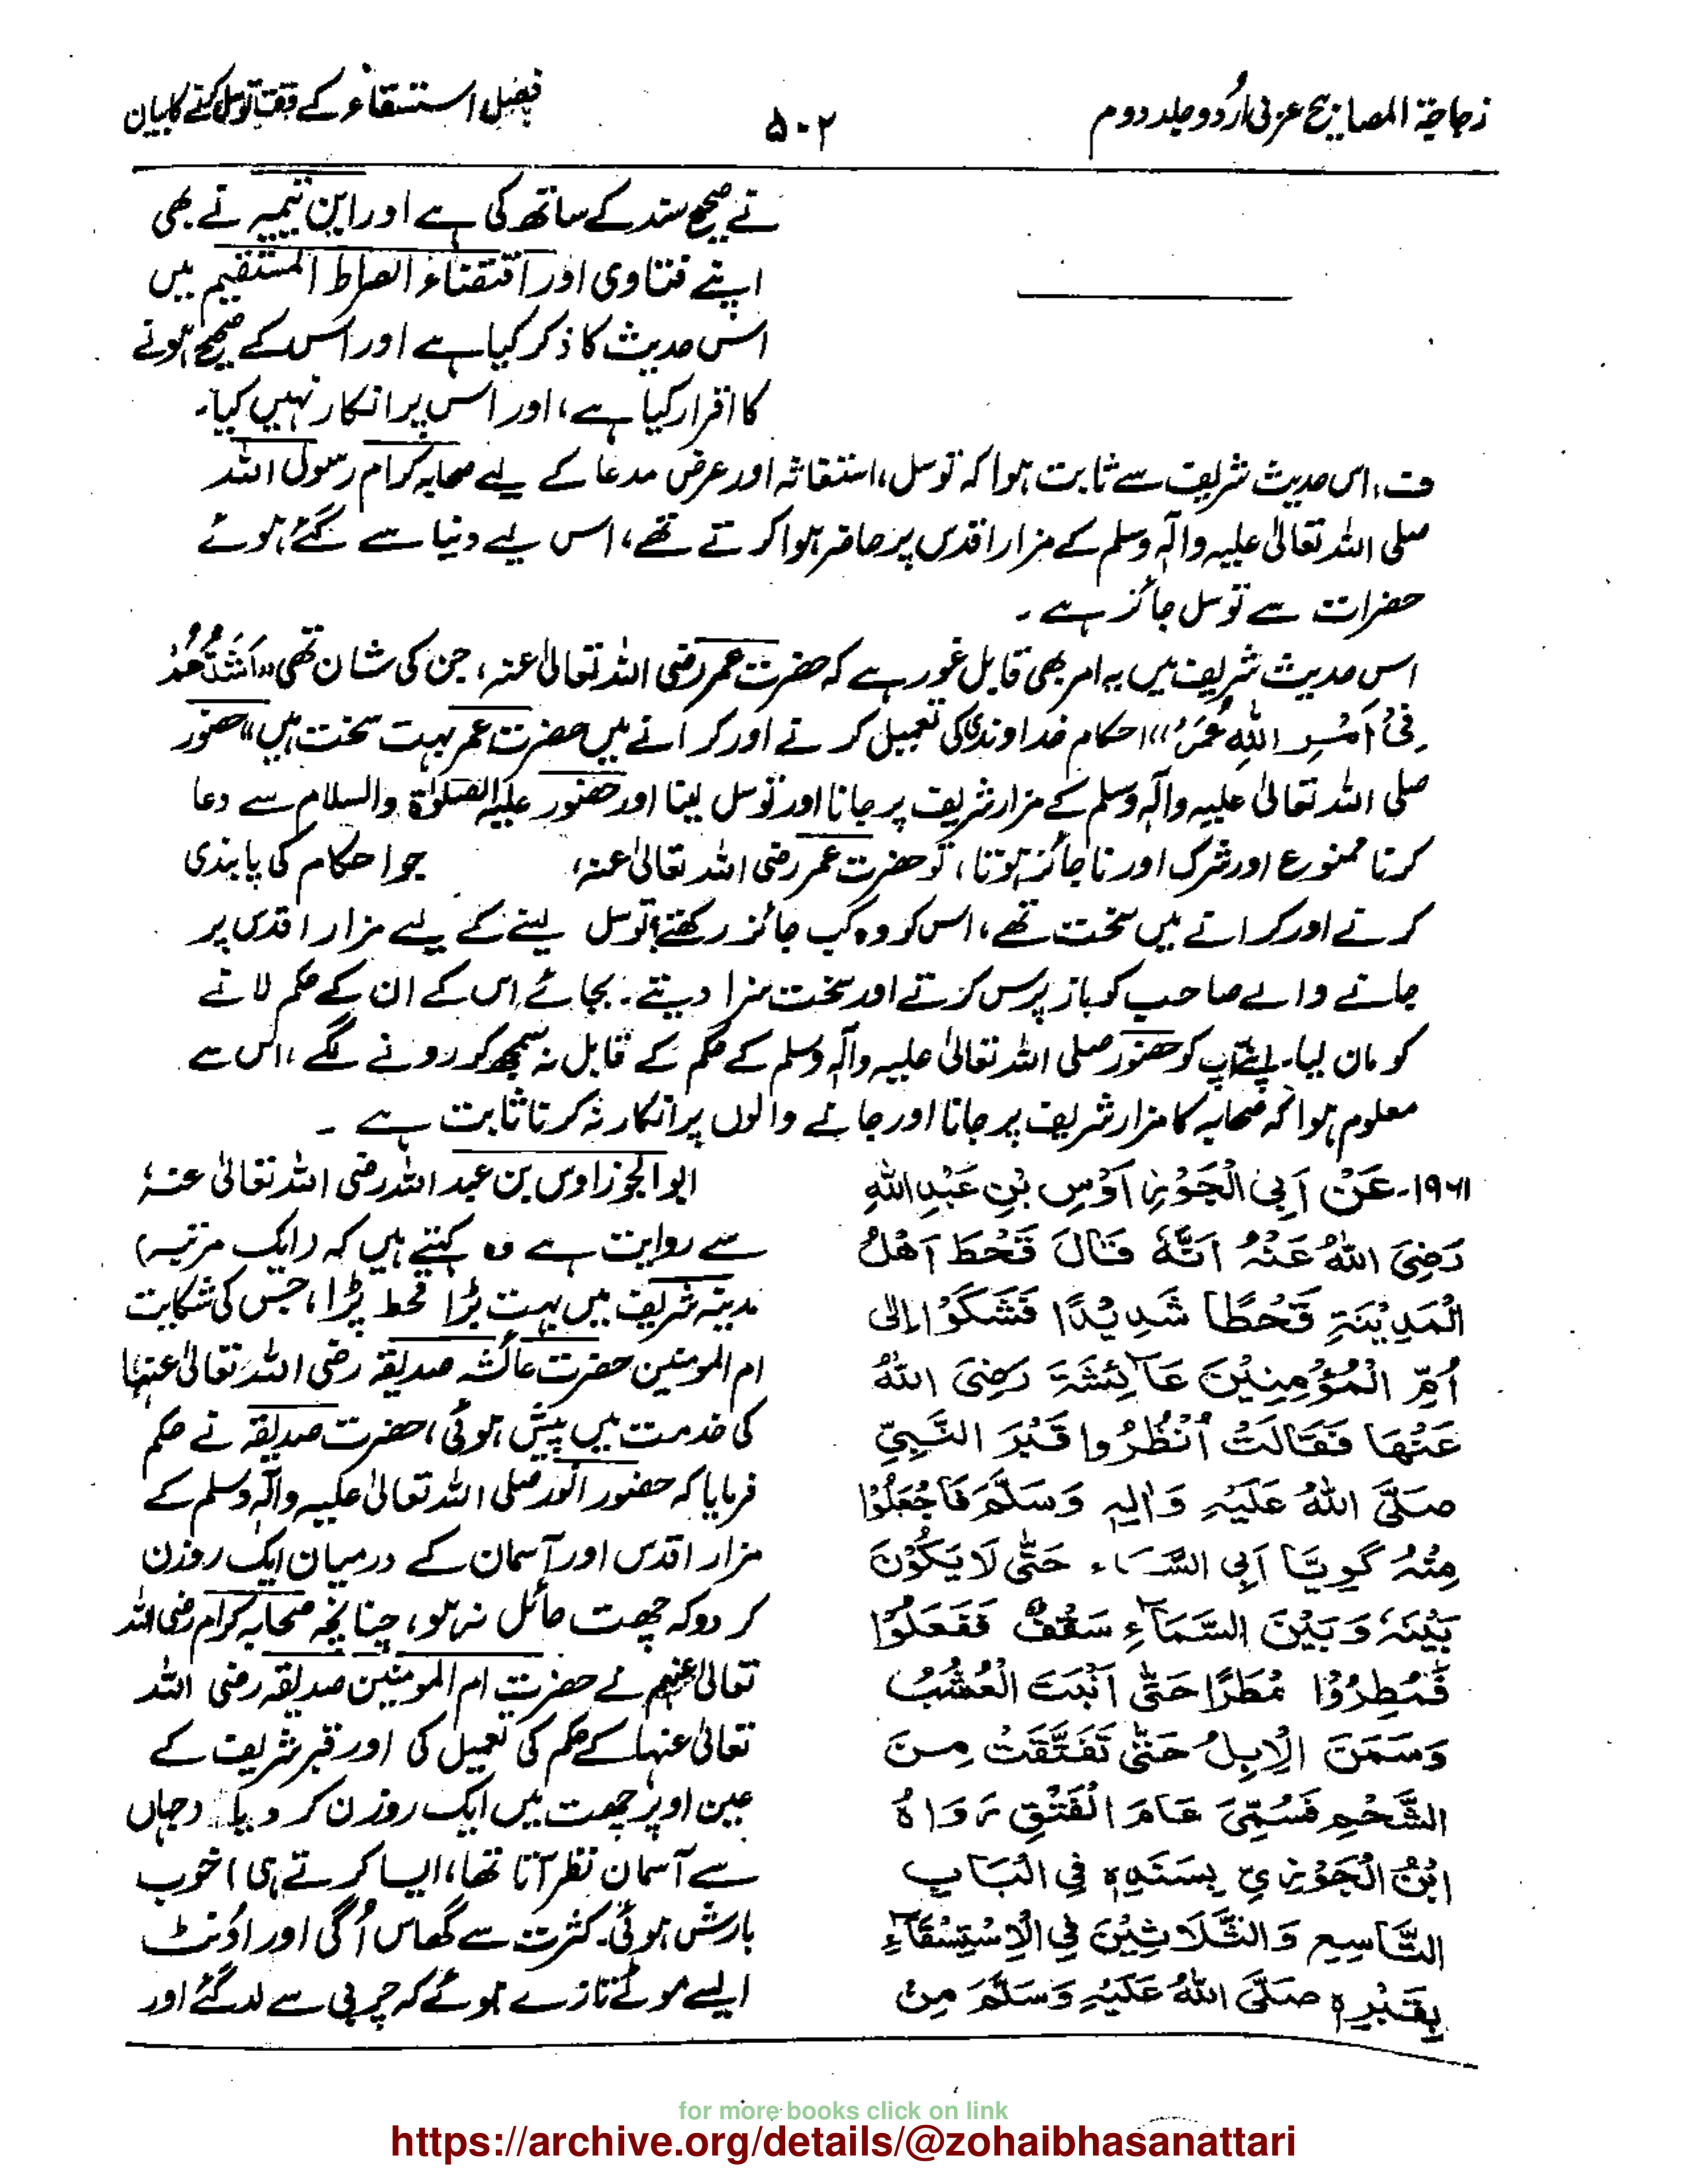 زجاجۃ المصابیح عربی اردو جلد دوم
۵۰۲
فضل استسقاء کے وقت توسل کرنے کا بیان
نے صحیح سند کے ساتھ کی ہے اور ابن تیمیہ نے بھی
اپنے فتاوی اور اقتضاء الصراط المستقیم میں
اس حدیث کا ذکر کیا ہے اور اس کے صحیح ہونے
کا اقرار کیا ہے، اور اس پر انکار نہیں کیا۔
ف، اس حدیث شریف سے ثابت ہوا کہ توسل، استغاثہ اور عرض مدعا کے لیے صحابہ کرام رسول اللہ
صلی اللہ تعالیٰ علیہ وآلہٖ وسلم کے مزار اقدس پر حاضر ہوا کرتے تھے، اس لیے دنیا سے گئے ہوئے
حضرات سے توسل جائز ہے۔
اس حدیث شریف میں یہ امر بھی قابل غور ہے کہ حضرت عمر رضی اللہ تعالیٰ عنہ، جن کی شان تھی «اَشَدُّهُمْ
فِیْ اَمْرِ اللّٰهِ عُمَرُ» احکام خداوندی کی تعمیل کرنے اور کرانے میں حضرت عمر بہت سخت ہیں» حضور
صلی اللہ تعالیٰ علیہ وآلہٖ وسلم کے مزار شریف پر جانا اور توسل لینا اور حضور علیہ الصلوٰۃ والسلام سے دعا
کرنا ممنوع اور شرک اور ناجائز ہوتا، تو حضرت عمر رضی اللہ تعالیٰ عنہ، جو احکام کی پابندی
کرنے اور کرانے میں سخت تھے، اس کو وہ کب جائز رکھتے؛ توسل لینے کے لیے مزار اقدس پر
جانے والے صاحب کو باز پرس کرتے اور سخت سزا دیتے۔ بجائے اس کے ان کے حکم لانے
کو مان لیا۔ اپنے آپ کو حضور صلی اللہ تعالیٰ علیہ وآلہٖ وسلم کے حکم کے قابل نہ سمجھ کر رونے لگے، اس سے
معلوم ہوا کہ صحابہ کا مزار شریف پر جانا اور جانے والوں پر انکار نہ کرنا ثابت ہے۔
۱۹۶۱۔ عَنْ اَبِی الْجَوْزِاءِ اَوْسِ بْنِ عَبْدِ اللّٰهِ
رَضِیَ اللّٰهُ عَنْهُ اَنَّهٗ قَالَ قَحَطَ اَهْلُ
الْمَدِیْنَةِ قَحْطًا شَدِیْدًا فَشَكَوْا اِلٰی
اُمِّ الْمُؤْمِنِیْنَ عَائِشَةَ رَضِیَ اللّٰهُ
عَنْهَا فَقَالَتْ اُنْظُرُوا قَبْرَ النَّبِیِّ
صَلَّی اللّٰهُ عَلَیْهِ وَاٰلِهٖ وَسَلَّمَ فَاجْعَلُوْا
مِنْهُ كَوِیًّا اَبِی السَّمَاءِ حَتّٰی لَا یَكُوْنَ
بَیْنَهٗ وَبَیْنَ السَّمَاءِ سَقْفٌ فَفَعَلُوْا
فَمُطِرُوْا مُطَرًا حَتّٰی اَنْبَتَ الْعُشْبُ
وَسَمَنَ الْاِبِلُ حَتّٰی تَفَتَّقَتْ مِنَ
الشَّحْمِ فَسُمِّیَ عَامَ الْفَتْقِ رَوَاهُ
ابْنُ الْجَوْزِیِّ بِسَنَدِهٖ فِی الْبَابِ
التَّاسِعِ وَالثَّلَاثِیْنَ فِی الْاِسْتِسْقَاءِ
بِقَبْرِهٖ صَلَّی اللّٰهُ عَلَیْهِ وَسَلَّمَ مِنْ
ابوالجوزا اوس بن عبد اللہ رضی اللہ تعالیٰ عنہ
سے روایت ہے وہ کہتے ہیں کہ (ایک مرتبہ)
مدینہ شریف میں بہت بڑا قحط پڑا، جس کی شکایت
ام المومنین حضرت عائشہ صدیقہ رضی اللہ تعالیٰ عنہا
کی خدمت میں پیش ہوئی، حضرت صدیقہ نے حکم
فرمایا کہ حضور انور صلی اللہ تعالیٰ علیہ وآلہٖ وسلم کے
مزار اقدس اور آسمان کے درمیان ایک روزن
کر دو کہ چھت حائل نہ ہو، چنانچہ صحابہ کرام رضی اللہ
تعالیٰ عنہم نے حضرت ام المومنین صدیقہ رضی اللہ
تعالیٰ عنہا کے حکم کی تعمیل کی اور قبر شریف کے
عین اوپر چھت میں ایک روزن کر دیا (جہاں
سے آسمان نظر آتا تھا، ایسا کرتے ہی) خوب
بارش ہوئی۔ کثرت سے گھاس اُگی اور اونٹ
ایسے موٹے تازے ہوئے کہ چربی سے لد گئے اور
for more books click on link
https://archive.org/details/@zohaibhasanattari